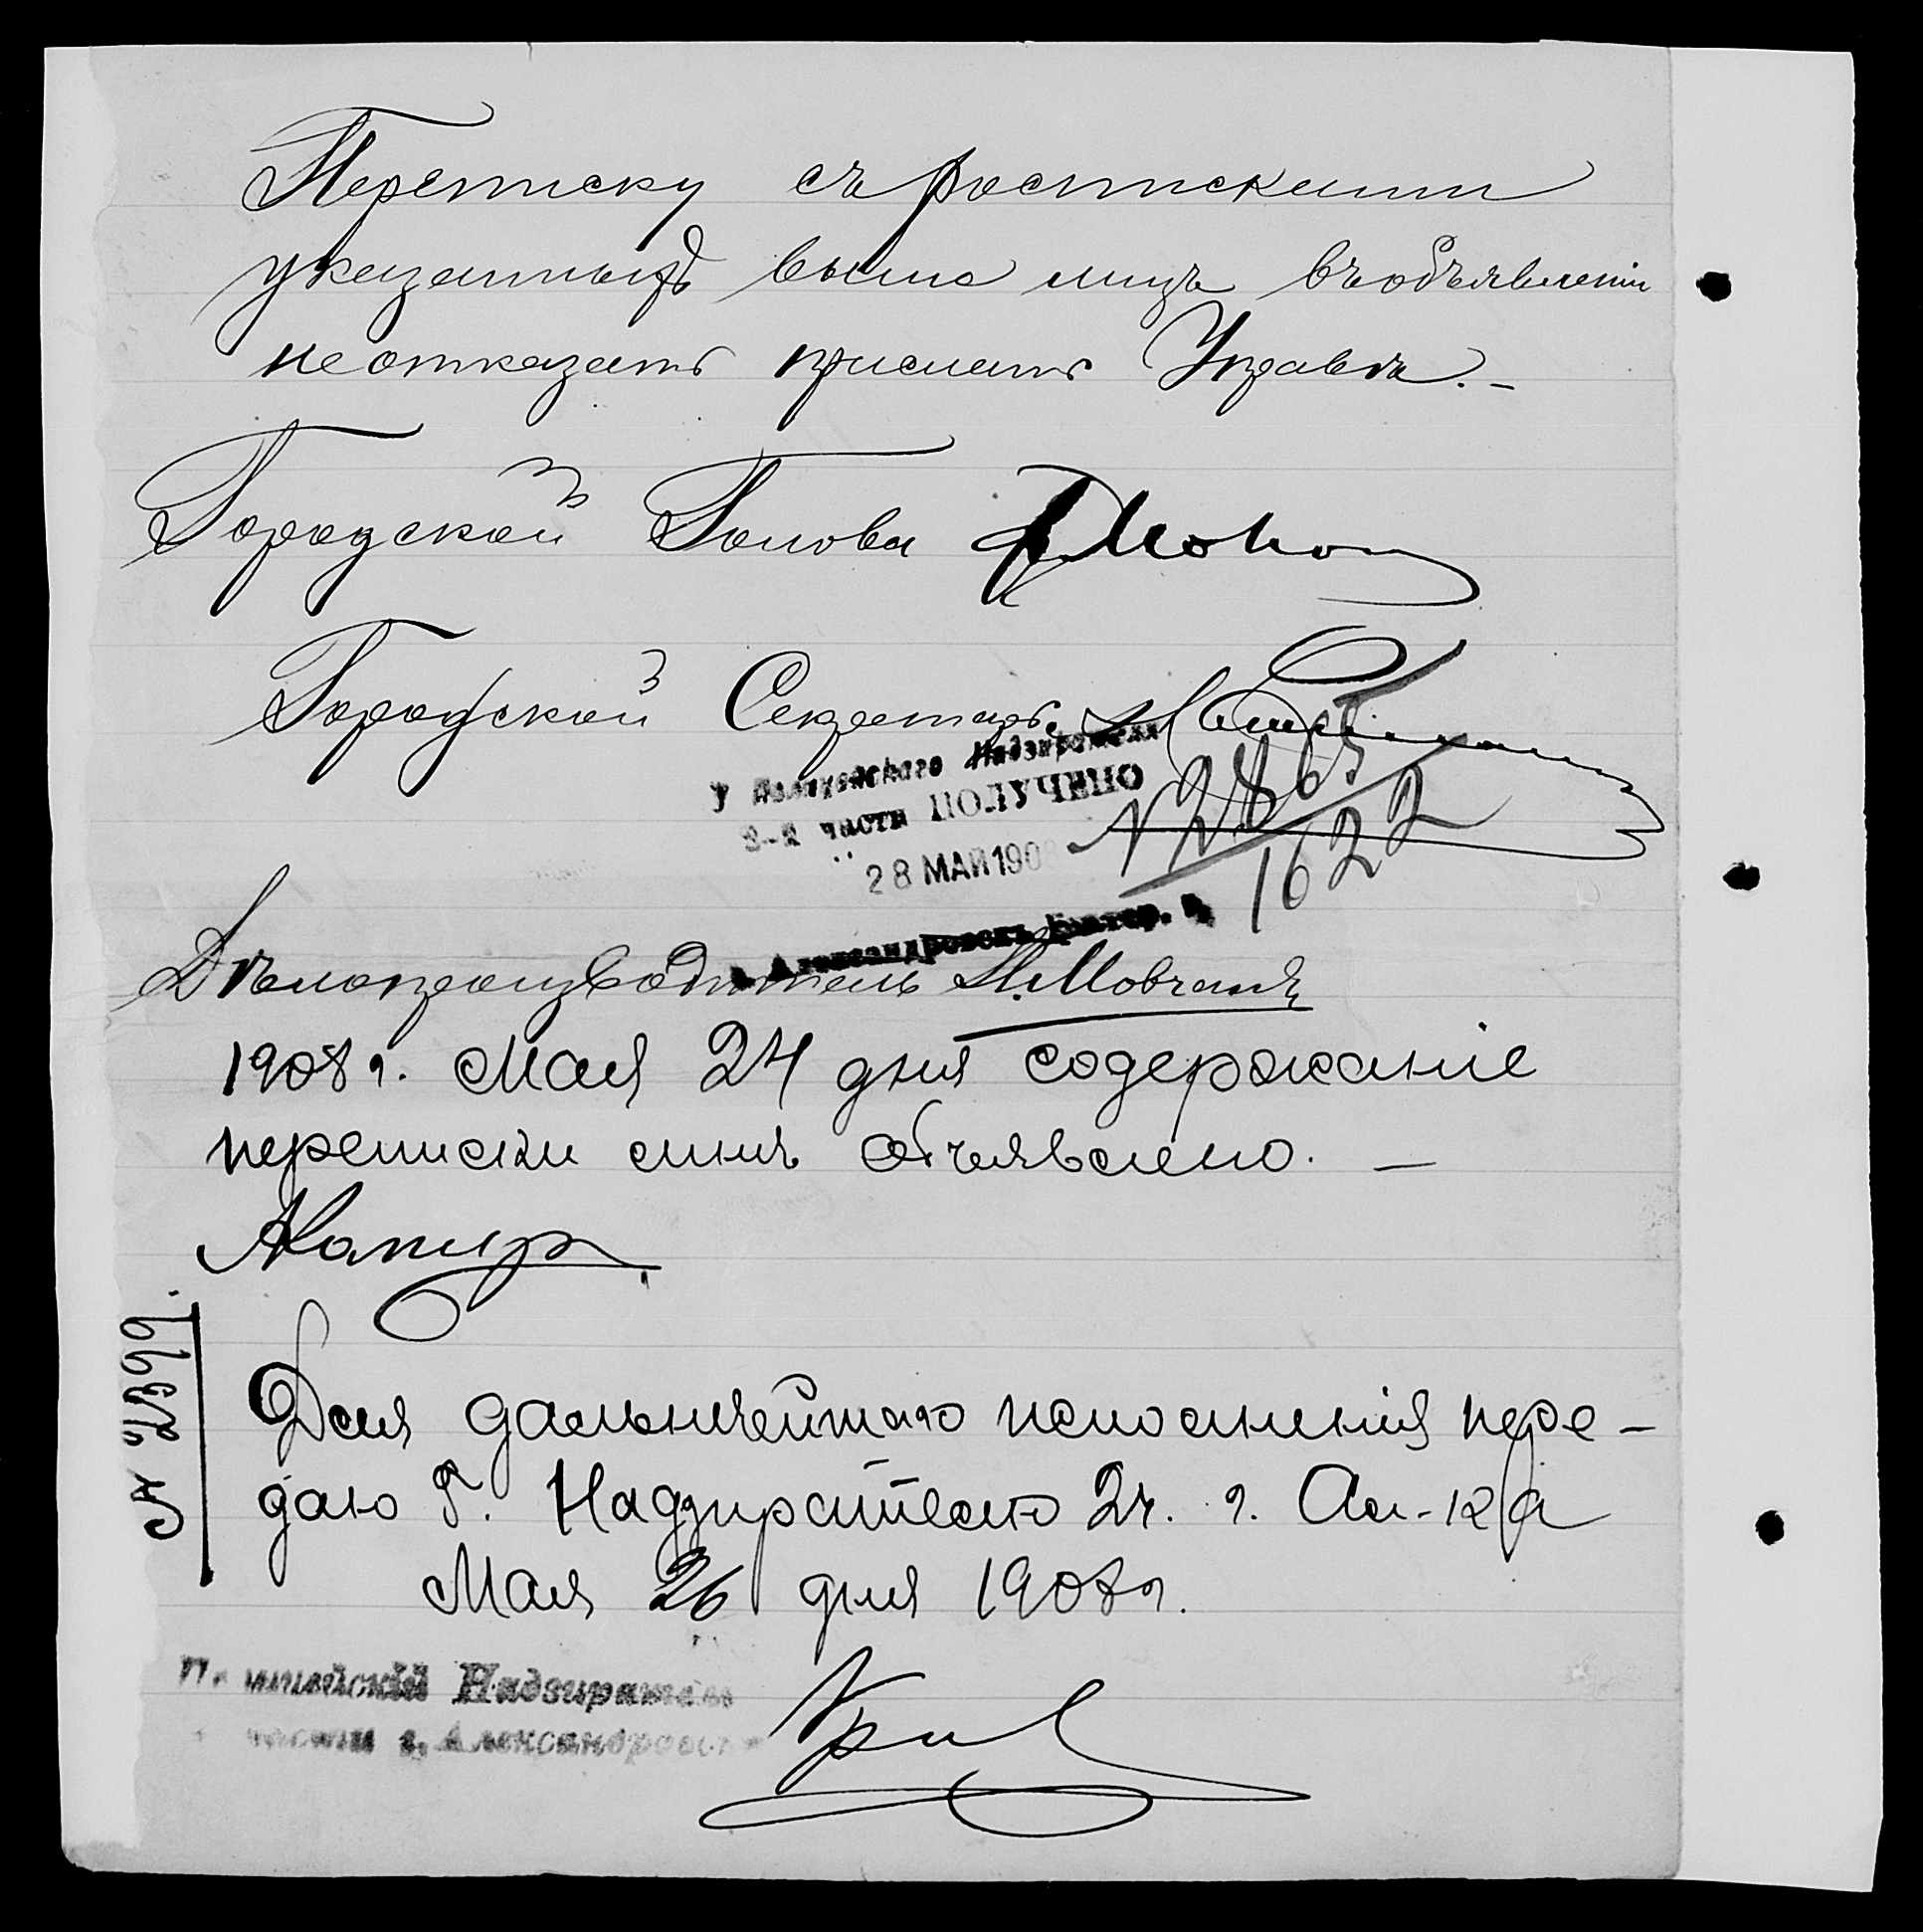 Переписку съ росписками
указанныхъ выше лицъ въ объявленіи
не отказать прислать Управѣ. -
Городской Голова
Городской Секретарь
У Полицейскаго Надзирателя
2-й части ПОЛУЧЕНО
28 МАЙ 1908
N 2865/1622
г. Александровскъ Екатер. г.
Дѣлопроизводитель Н. Мовчанъ
1908 г. Мая 24 дня содержаніе
переписки мнѣ объявлено. —
№ 2399.
Для дальнѣйшаго исполненія пере-
даю Г. Надзирателю 2 ч. г. Ал-ка
Мая 26 дня 1908 г.
Полицейскій Надзиратель
части г. Александровска